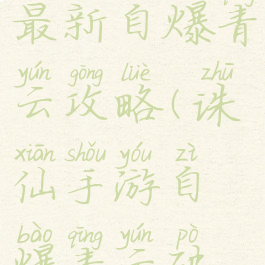 最新自爆菁
yún gōng lüè zhū
云攻略(诛
xiān shǒu yóu zì
仙手游自
bào qīng yún pò